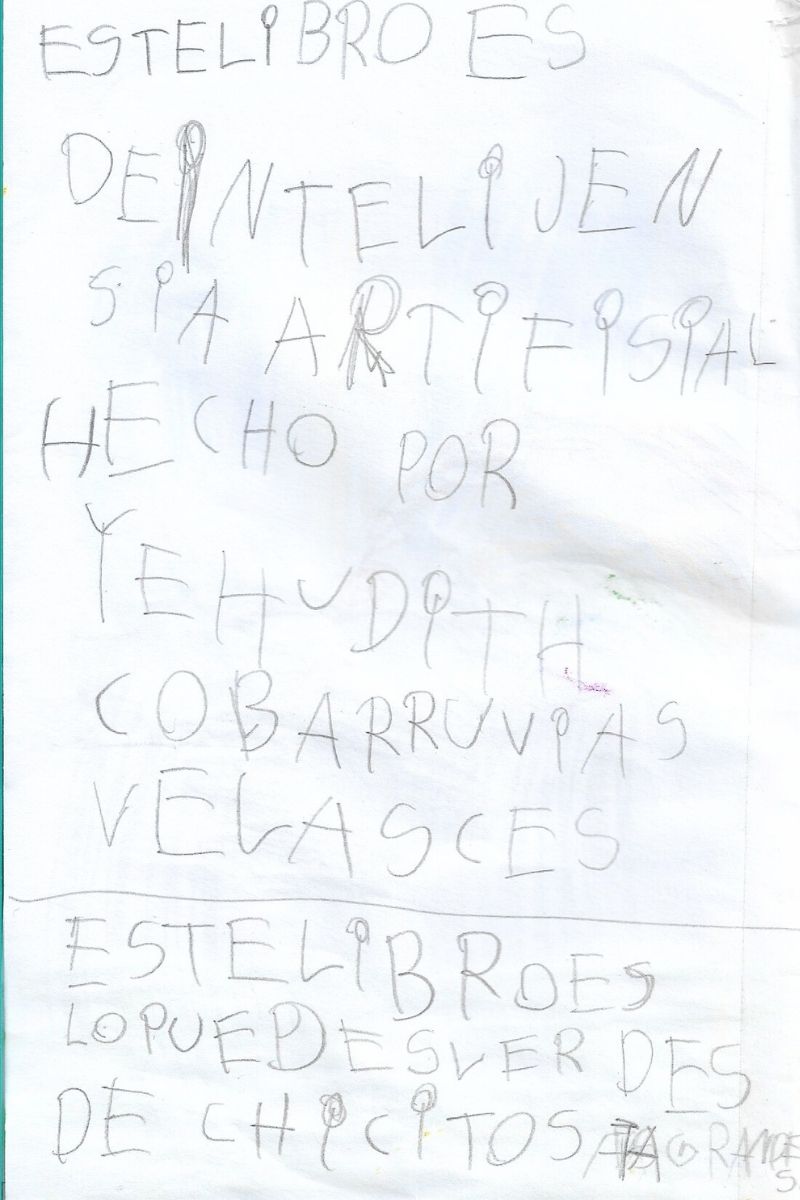 ESTELiBRO ES
DEiNTELiJEN
SiA ARTiFiSiAL
HECHO POR
YEHUDiTH
COBARRUViAS
VELASCES
ESTELiBROES
LOPUEDESVER DES
DE CHiCiTOS GRANDE
S